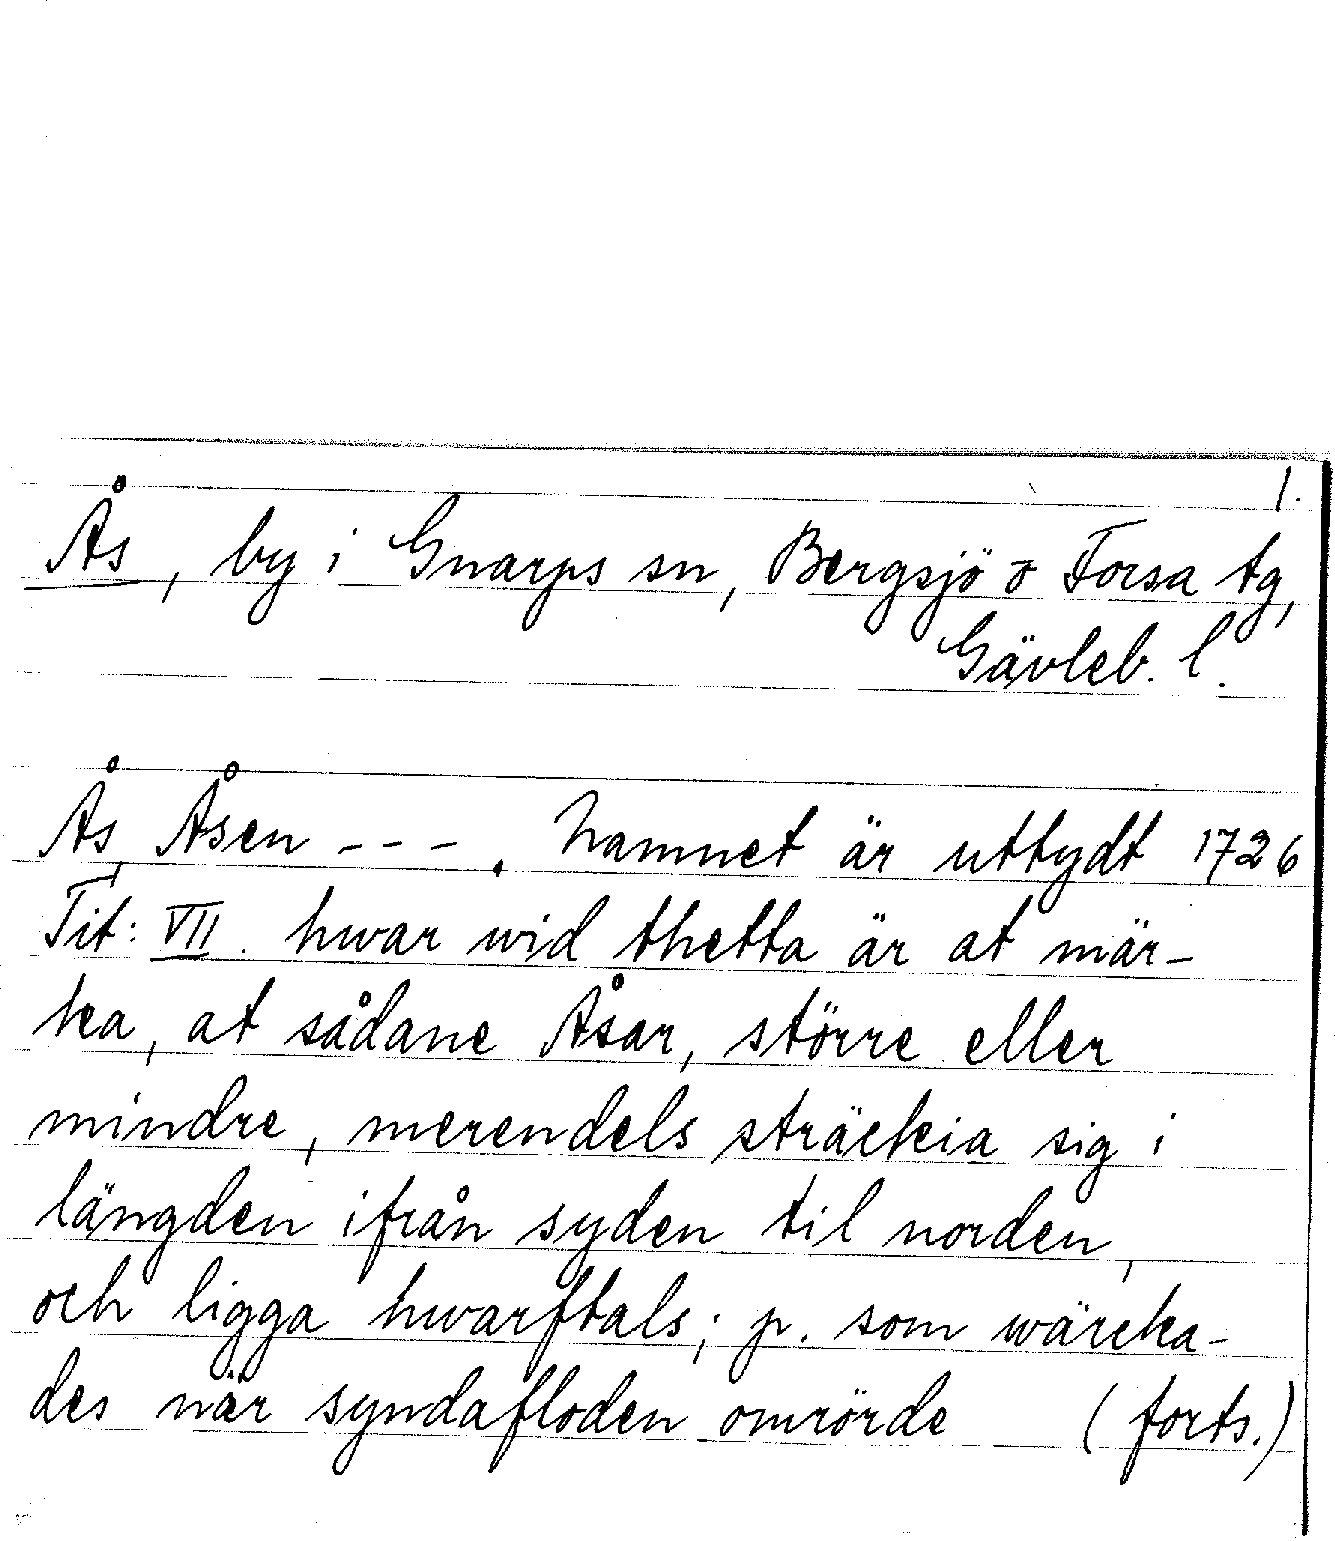 1.
Ås, by i Gnarps sn, Bergsjö o Forsa tg,
Gävleb. l.
Ås, Åsen - - - . Namnet är uttydt 1726
Tit: VII. hwar wid thetta är at mär-
ka, at sådane Åsar, större eller
mindre, merendels sträckia sig i
längden ifrån syden til norden,
och ligga hwarftals; p. som wärcka-
des när syndafloden omrörde (forts.)